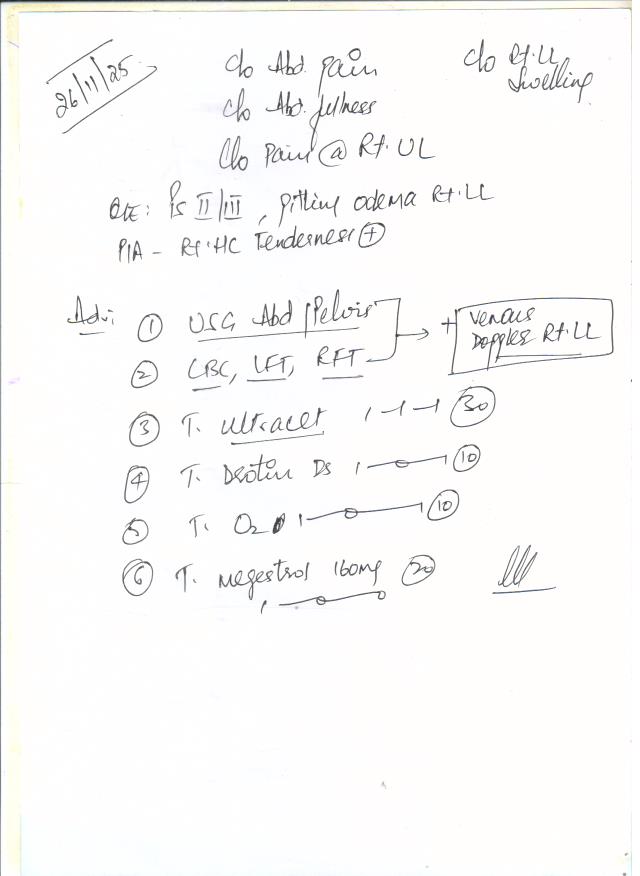 26/11/25
c/o Abd. pain
c/o Rt. LL Swelling
c/o Abd. fullness
c/o Pain @ Rt. UL
O/E: PS II/III, pitting odema Rt. LL
P/A - Rt. HC Tenderness (+)
Adv:
① USG Abd/Pelvis
+ Venous Doppler Rt. LL
② CBC, LFT, RFT
③ T. Ultracet 1-1-1 (30)
④ T. Drotin DS 1-0-1 (10)
⑤ T. O2 1-0-1 (10)
⑥ T. Megestrol 160mg (20)
1-0-0